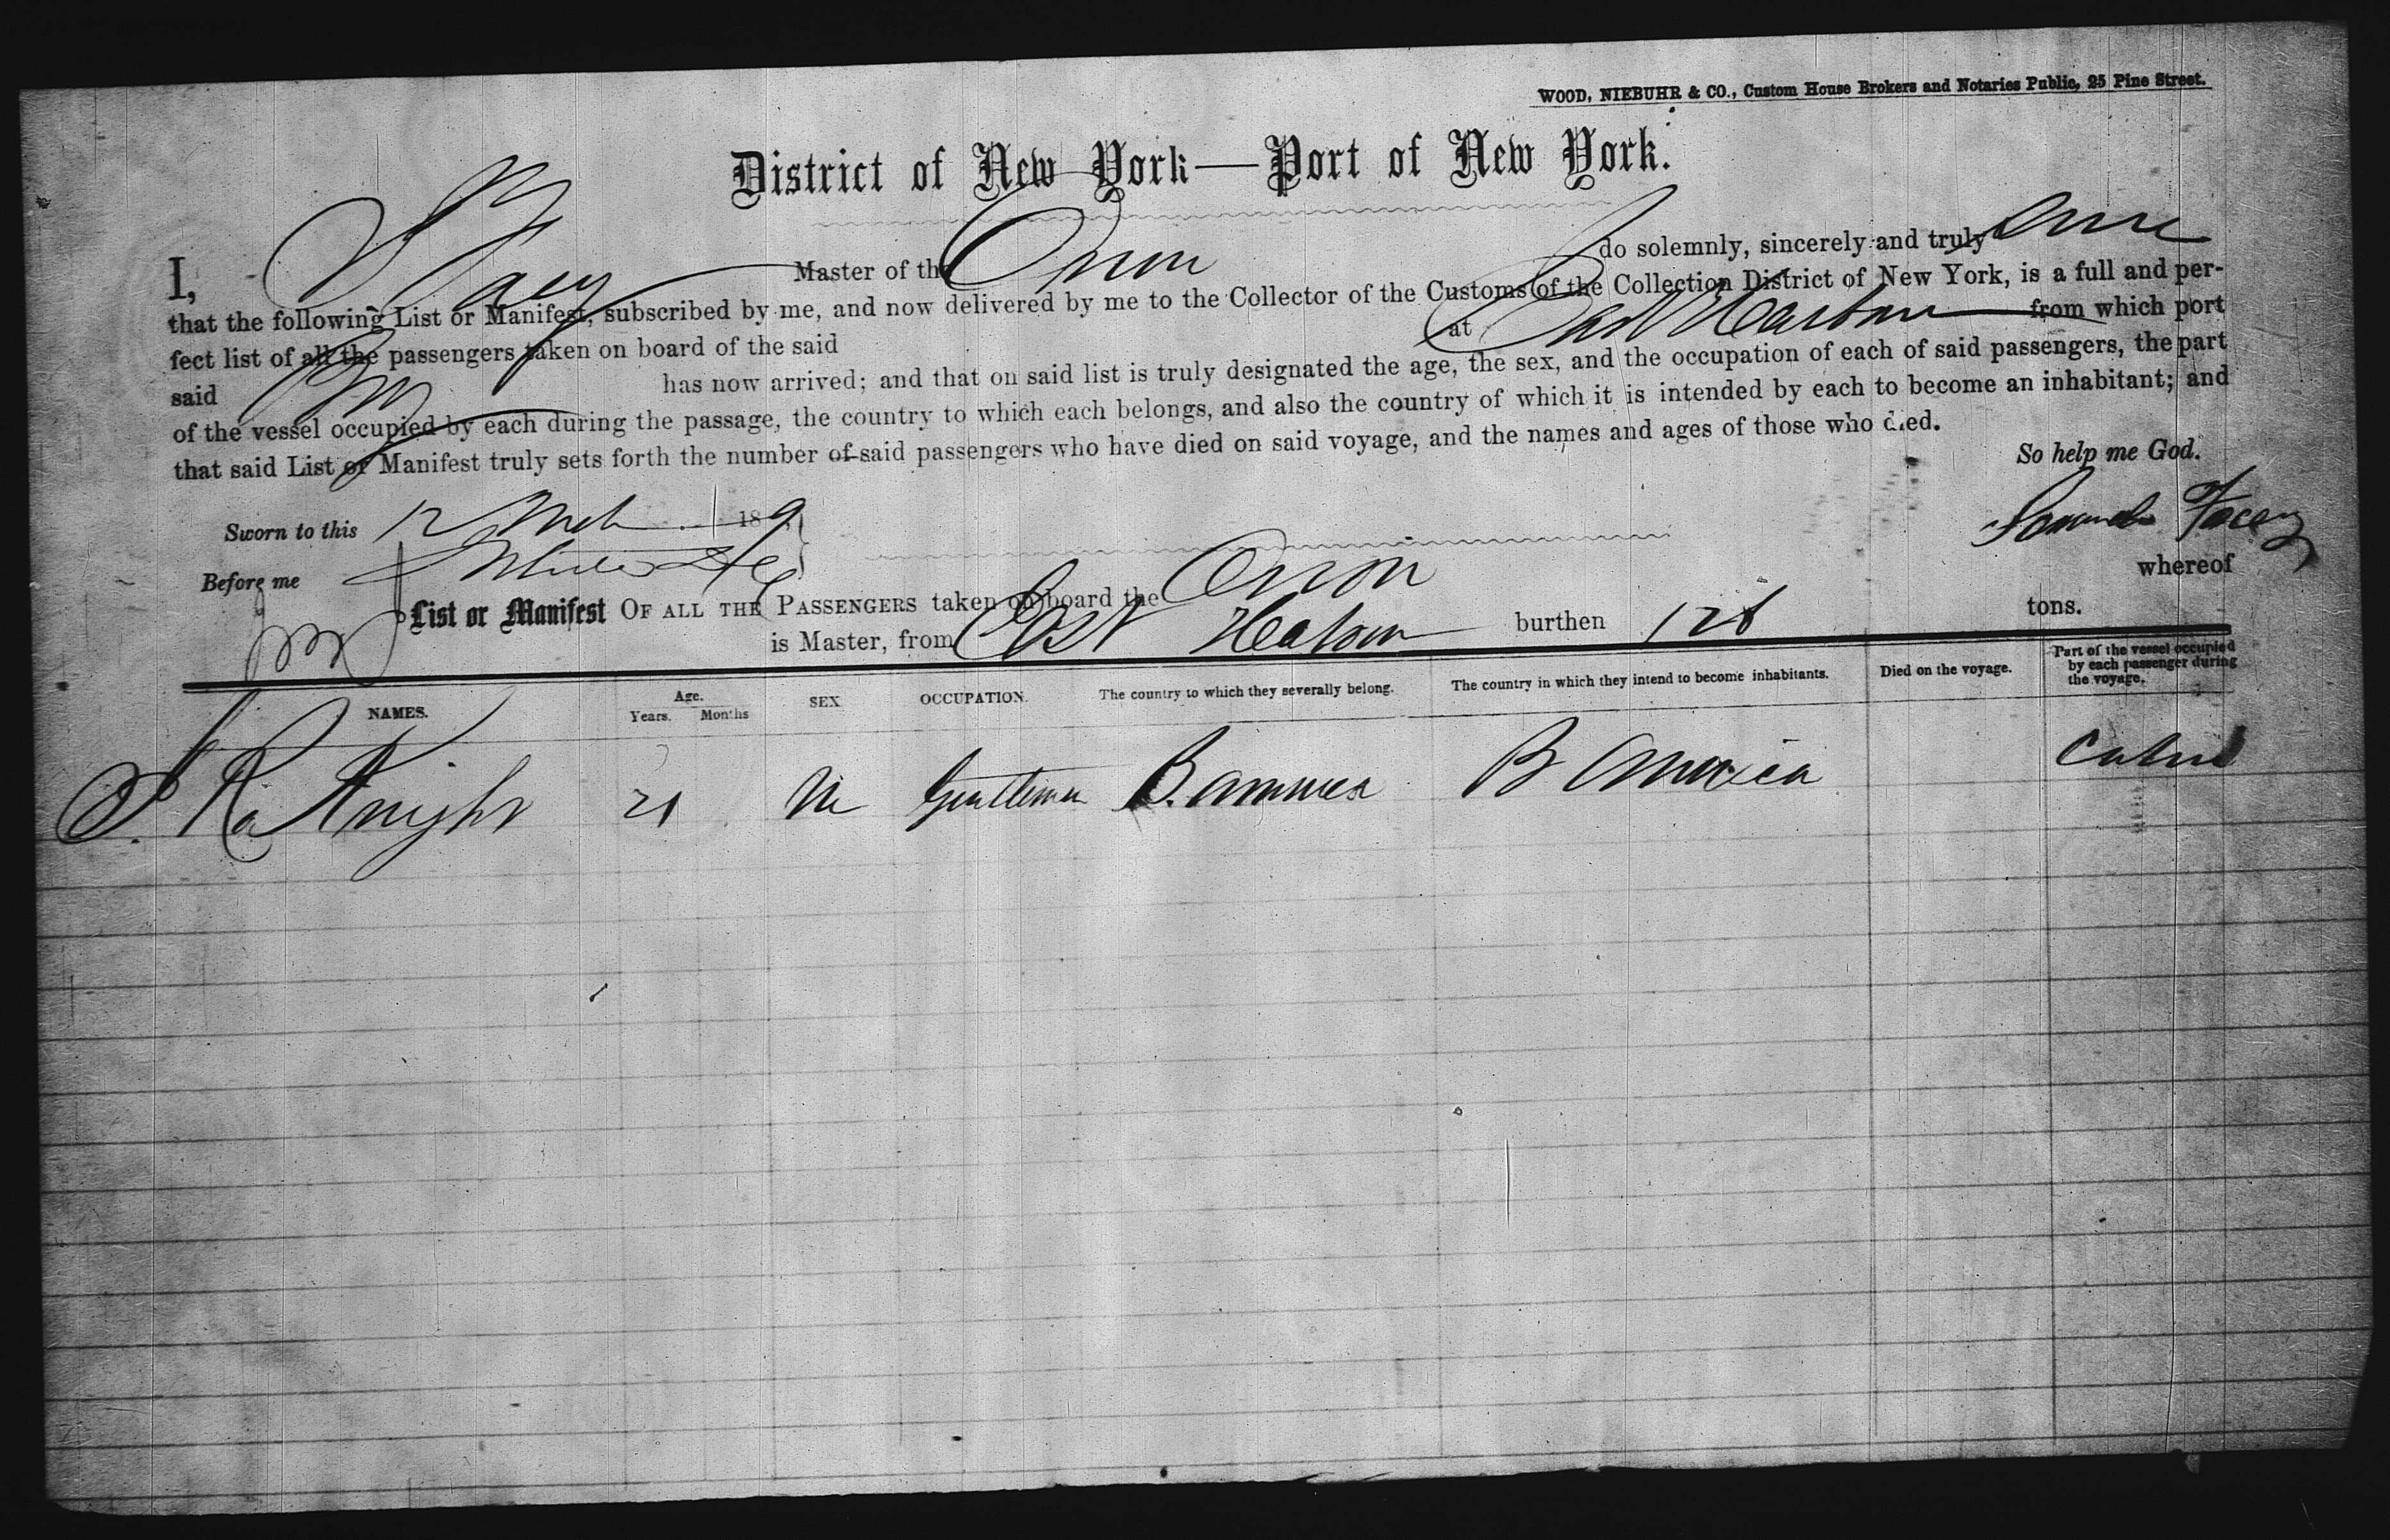 WOOD, NIEBUHR & CO., Custom House Brokers and Notaries Public, 25 Pine Street.
District of New York—Port of New York.
I, S Facey Master of the Orion do solemnly, sincerely and truly
that the following List or Manifest, subscribed by me, and now delivered by me to the Collector of the Customs of the Collection District of New York, is a full and per-
fect list of all the passengers taken on board of the said at East Harbour from which port
said has now arrived; and that on said list is truly designated the age, the sex, and the occupation of each of said passengers, the part
of the vessel occupied by each during the passage, the country to which each belongs, and also the country of which it is intended by each to become an inhabitant; and
that said List or Manifest truly sets forth the number of said passengers who have died on said voyage, and the names and ages of those who died.
So help me God.
Sworn to this 12 Mch 189
Samuel Facey
Before me
whereof
List or Manifest OF ALL THE PASSENGERS taken on board the Orion
is Master, from East Harbour burthen 128 tons.
NAMES. Age. Years. Months SEX OCCUPATION. The country to which they severally belong. The country in which they intend to become inhabitants. Died on the voyage. Part of the vessel occupied by each passenger during the voyage.
Knight 21 M Gentleman B. America B America Cabin